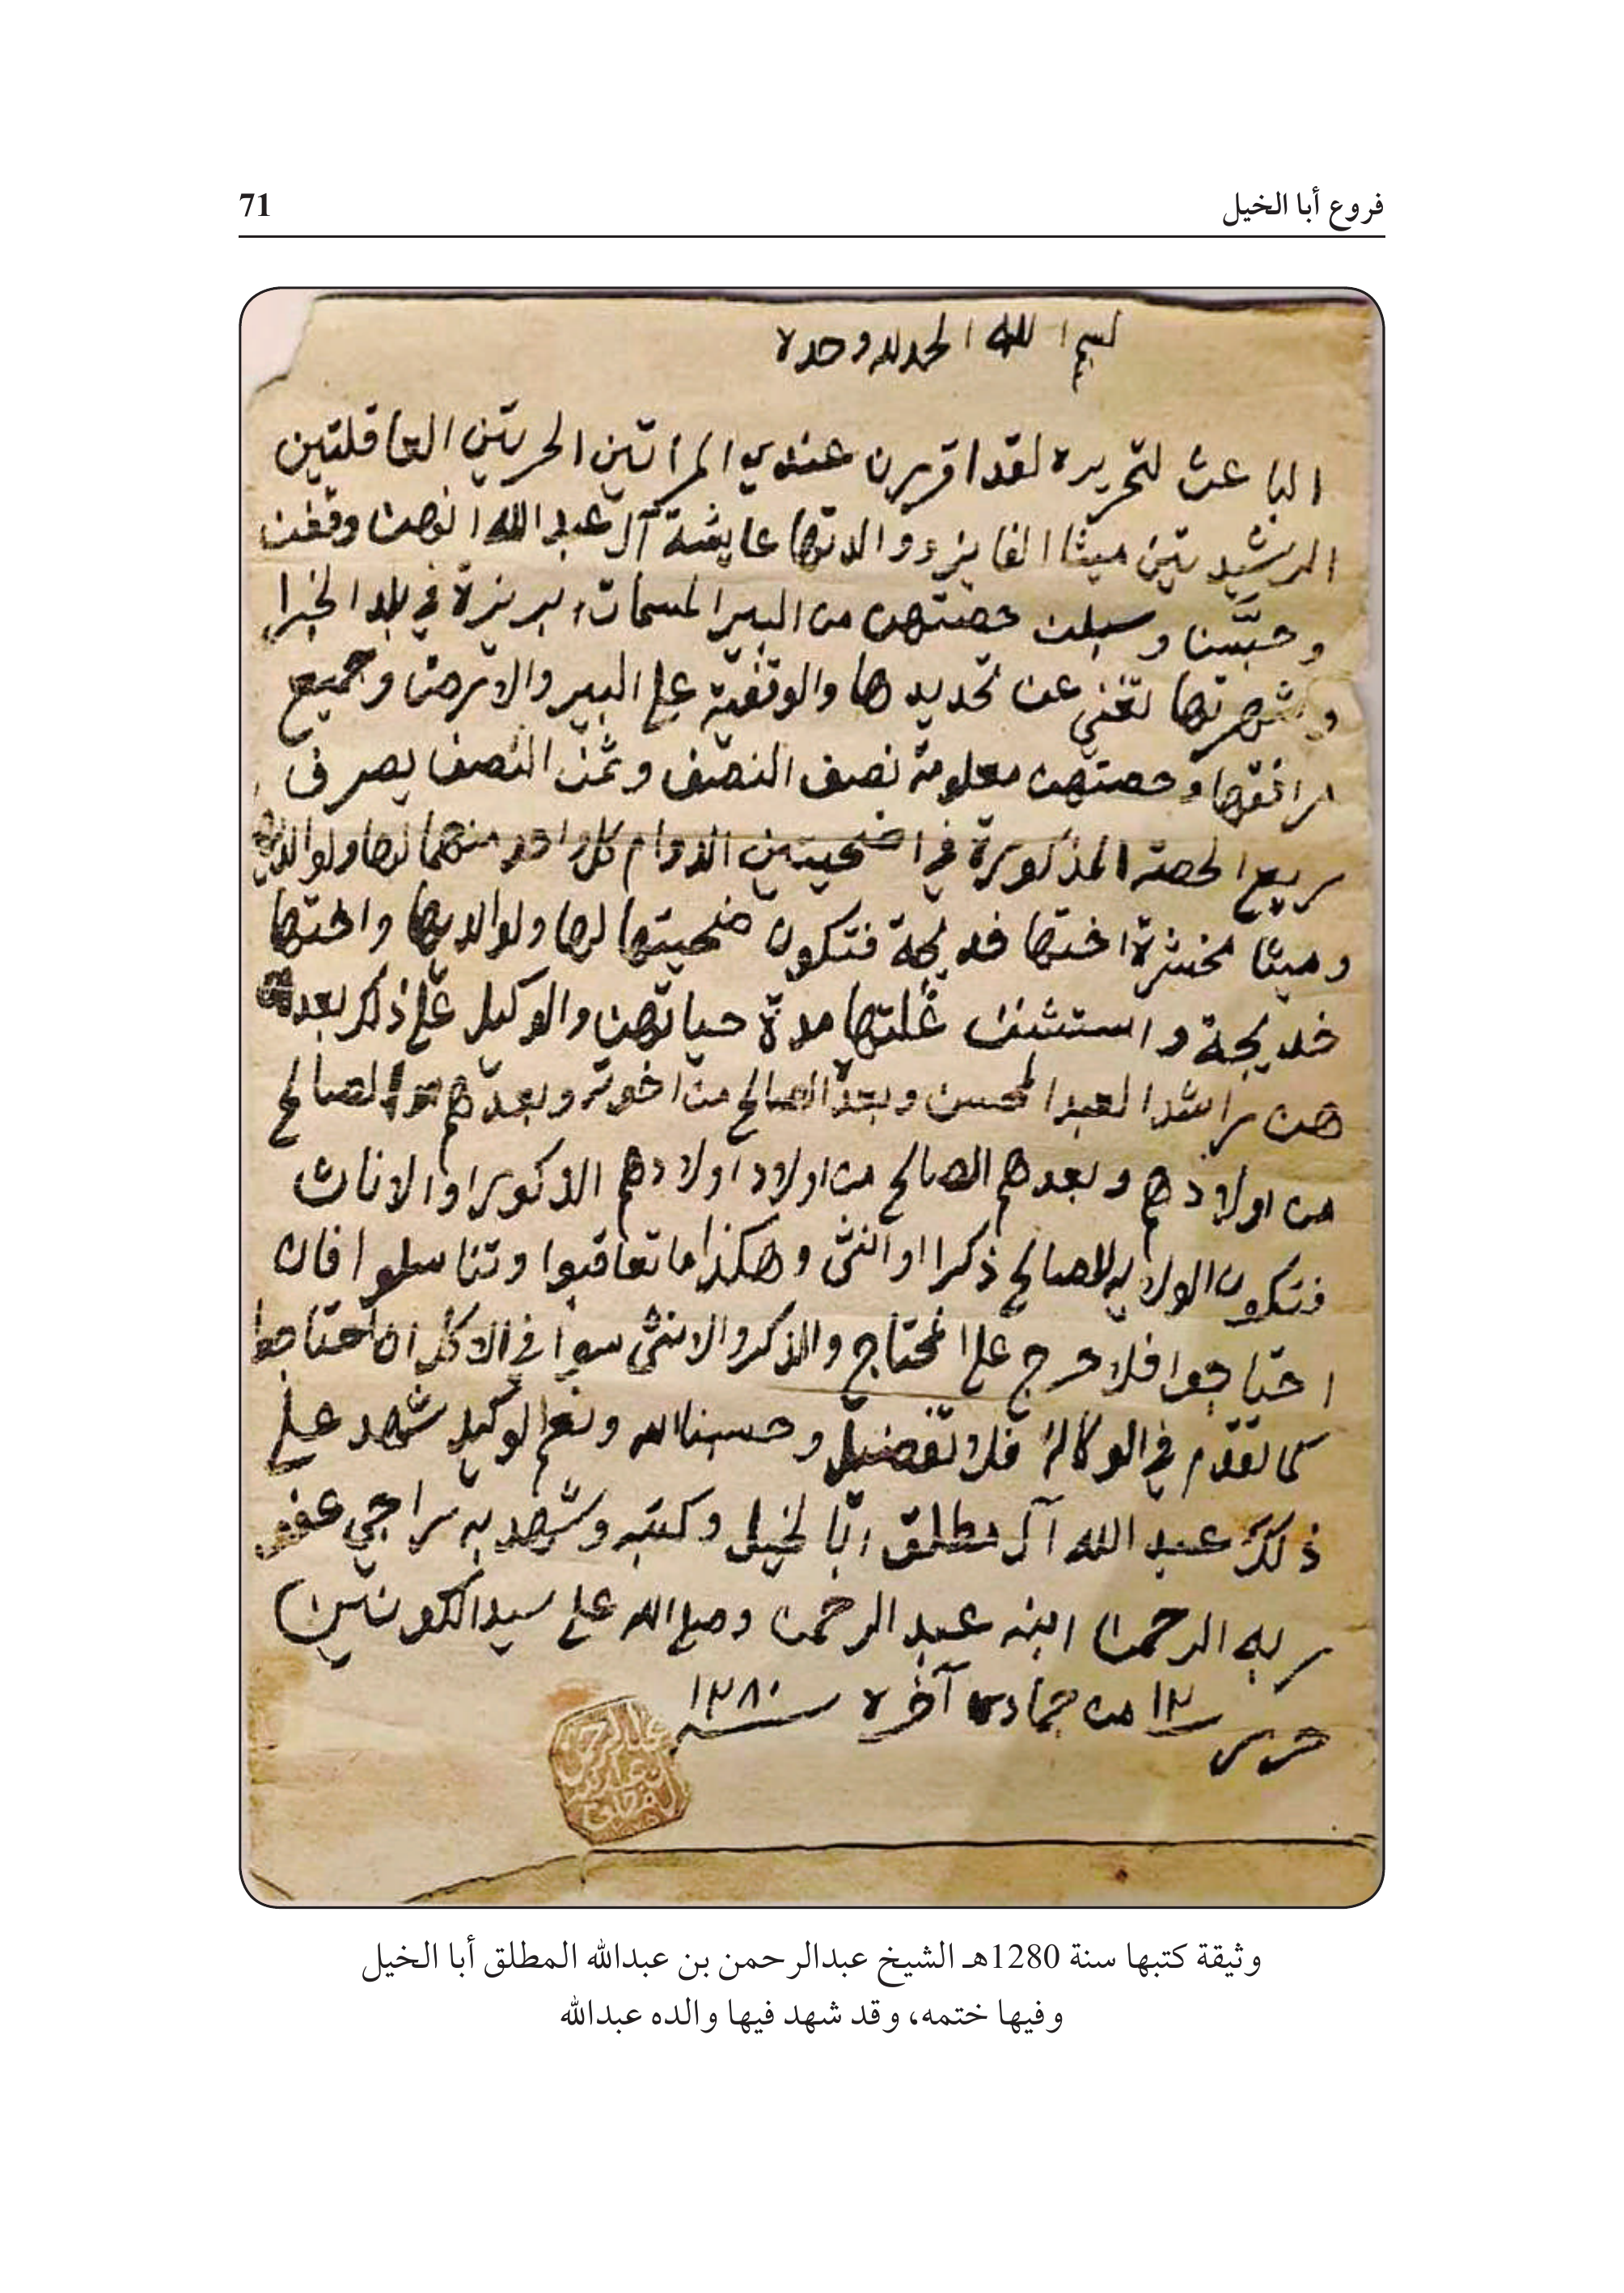 فروع أبا الخيل
71
بسم الله الحمد لله وحده
الباعث لتحريره لقد اقررن عندي المراتين الحريتين العاقلتين
الرشيديتين ميثا الفايز ووالدتها عايشة آل عبد الله انهن وقفن
وحبسن وسبلن حصتهن من البير المسمات بريزة في بلد الخبرا
وشهرتها تغني عن تحديدها والوقفية على البير والارض وجميع
مرافقها وحصتهن معلومة نصف النصف وثمن النصف يصرف
ريع الحصة المذكورة في اضحيتين الدوام كل واحد منهما لها ولوالديها
وميثا اختها خديجة فتكون ضحيتها لها ولوالديها واختها
خديجة واستثنن غلتها مدة حياتهن والوكيل على ذلك بعد
هن راشد العبد المحسن وبعده الصالح من اخوته وبعدهم الصالح
من اولادهم وبعدهم الصالح من اولاد اولادهم الذكور او الاناث
فتكون الولايه للصالح ذكرا او انثى وهكذا ما تعاقبوا وتناسلوا فان
احتاجوا فلا حرج على المحتاج والذكر والانثى سوا في الاكل ان احتاجوا
كما تقدم في الوكالة فلا تفضيل وحسبنا الله ونعم الوكيل شهد على
ذلك عبد الله آل مطلق ابا لخيل وكتبه وشهد به راجي عفو
ربه الرحمن ابنه عبد الرحمن وصلى الله على سيد الكونين
حرر ١٢ من جمادى آخره سنة ١٢٨٠
عبد الرحمن
وثيقة كتبها سنة 1280هـ الشيخ عبدالرحمن بن عبدالله المطلق أبا الخيل
وفيها ختمه، وقد شهد فيها والده عبدالله